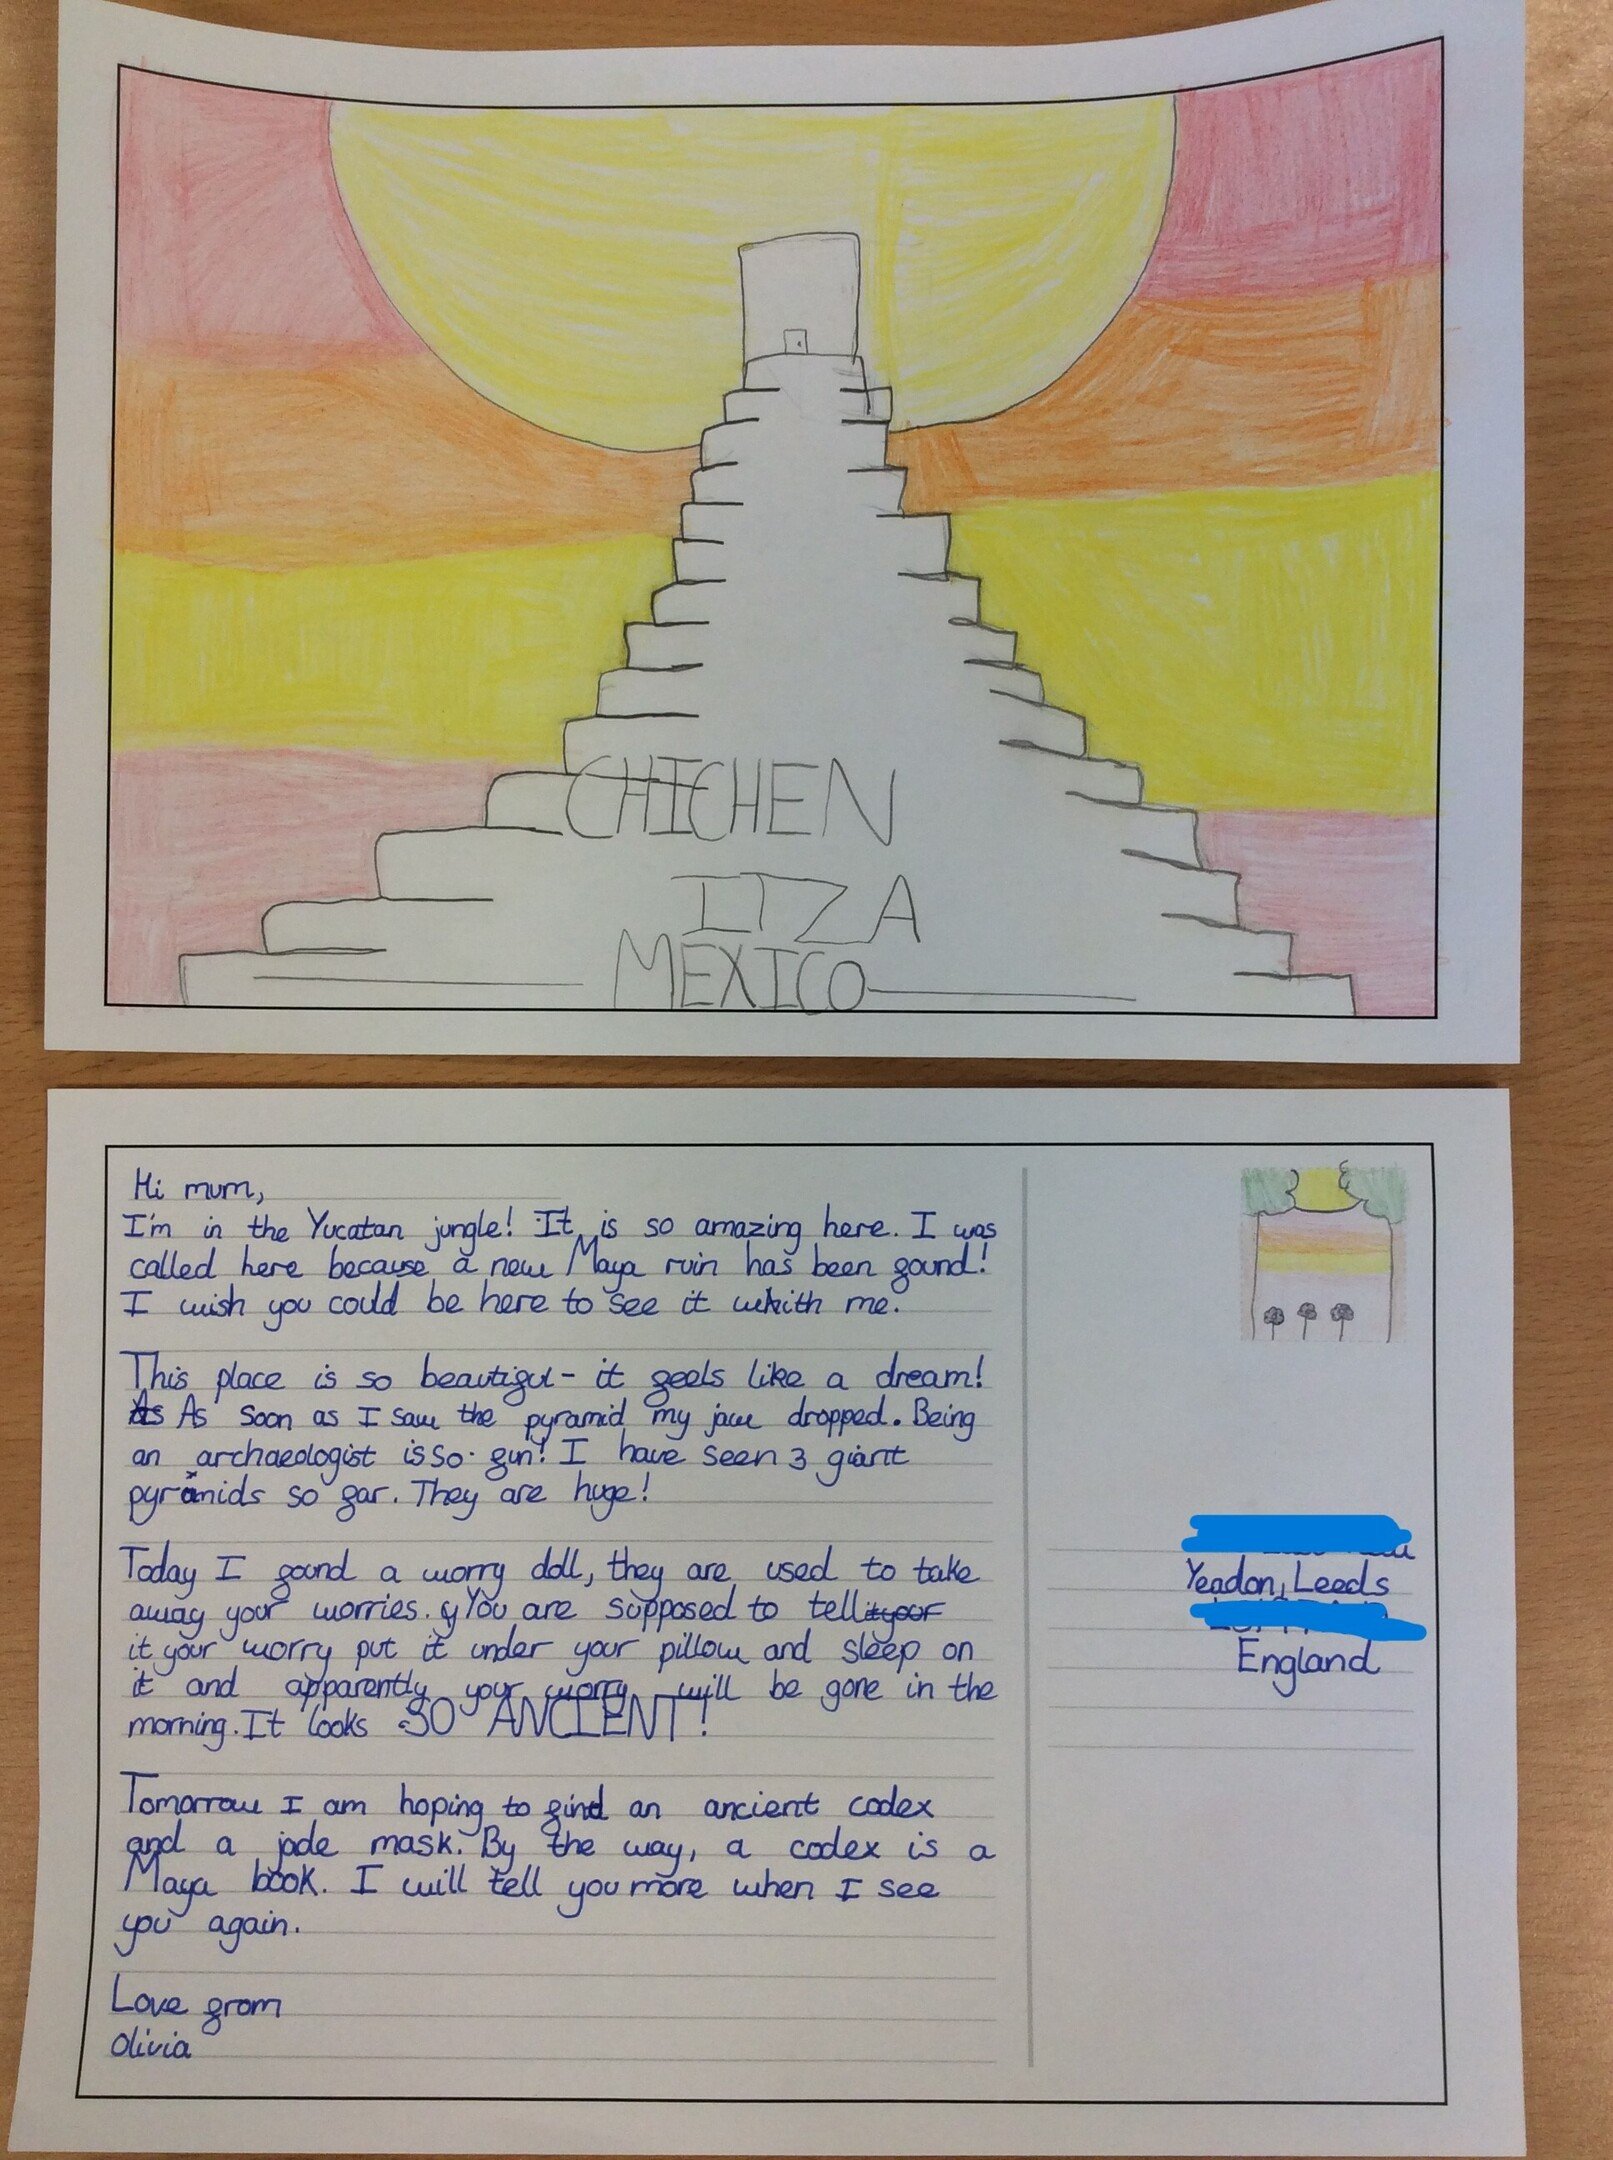 CHICHEN
ITZA
MEXICO
Hi mum,
I'm in the Yucatan jungle! It is so amazing here. I was
called here because a new Maya ruin has been found!
I wish you could be here to see it whith me.
This place is so beautiful- it feels like a dream!
As As soon as I saw the pyramid my jaw dropped. Being
an archaeologist is so fun! I have seen 3 giant
pyramids so far. They are huge!
Today I found a worry doll, they are used to take
away your worries. y You are supposed to tell it your
it your worry put it under your pillow and sleep on
it and apparently your worry will be gone in the
morning. It looks SO ANCIENT!
Tomorrow I am hoping to find an ancient codex
and a jade mask. By the way, a codex is a
Maya book. I will tell you more when I see
you again.
Love from
Olivia
Yeadon, Leeds
England